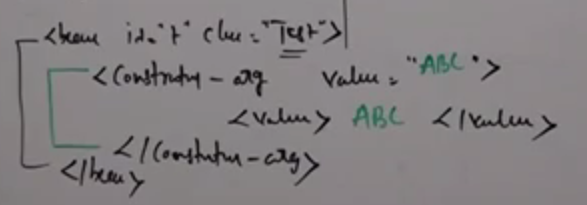 <bean id="t" class="Test">
<Constructor-arg value="ABC">
<value> ABC </value>
</Constructor-arg>
</bean>